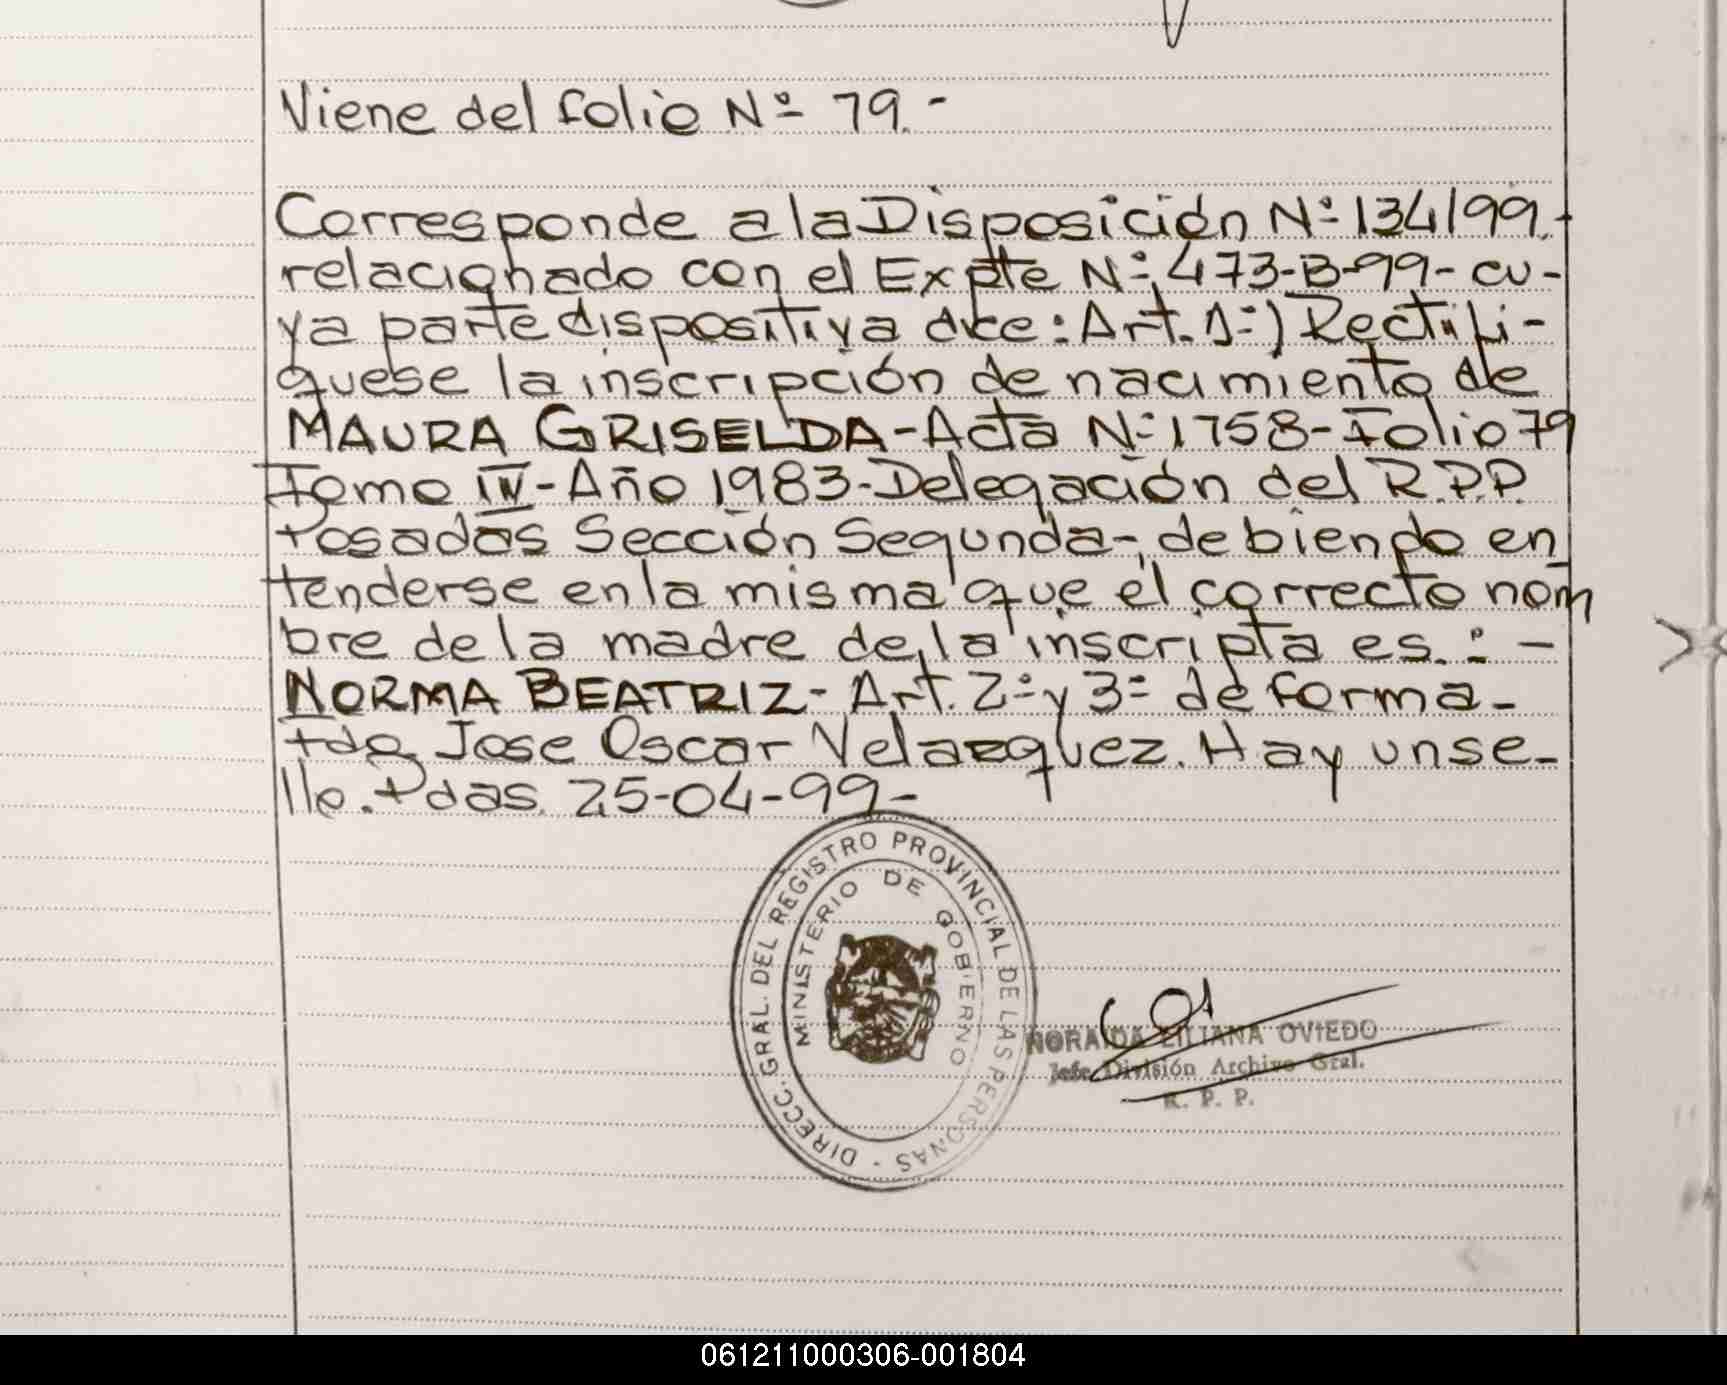 Viene del folio Nº 79.-
Corresponde a la Disposición Nº 134/99.-
relacionado con el Expte Nº 473-B-99- cu-
ya parte dispositiva dice: Art. 1º) Rectifi-
quese la inscripción de nacimiento de
MAURA GRISELDA-Acta Nº 1758-Folio 79
Tomo IV-Año 1983-Delegación del R.P.P.
Posadas Sección Segunda-, debiendo en
tenderse en la misma que el correcto nom
bre de la madre de la inscripta es.: -
NORMA BEATRIZ- Art. 2º y 3º de forma-
fdo Jose Oscar Velazquez. Hay un se-
llo. Pdas. 25-04-99-
DIRECC. GRAL. DEL REGISTRO PROVINCIAL DE LAS PERSONAS -
MINISTERIO DE GOBIERNO
NORAIDA LILIANA OVIEDO
Jefe División Archivo Gral.
R. P. P.
061211000306-001804